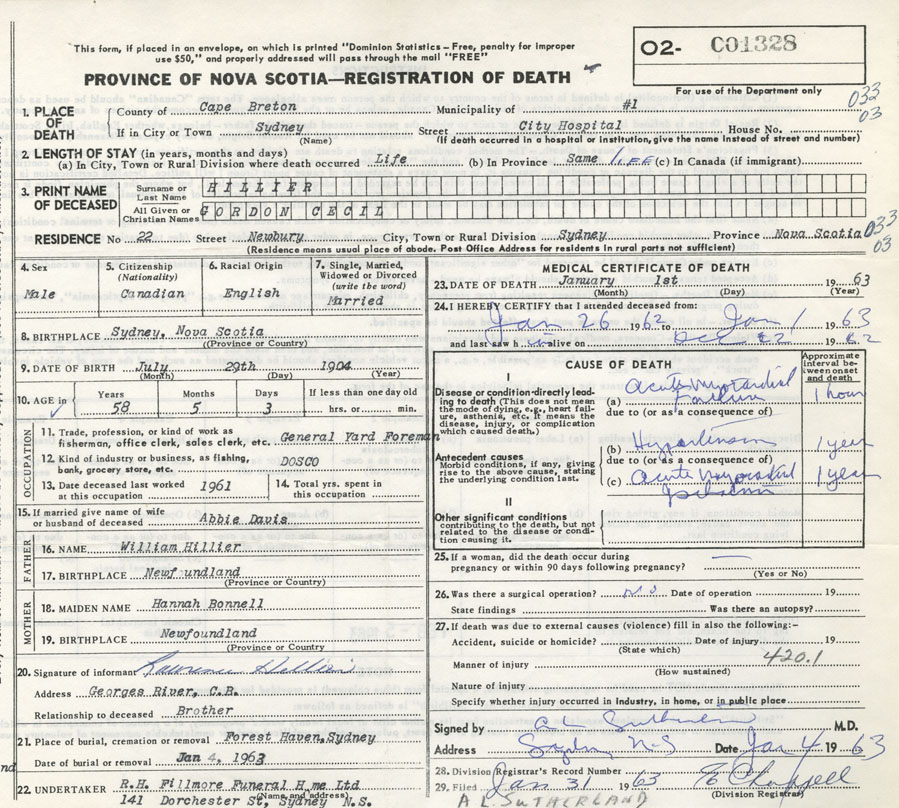 This form, if placed in an envelope, on which is printed "Dominion Statistics – Free, penalty for improper
use $50," and properly addressed will pass through the mail "FREE"
O2- C01328
PROVINCE OF NOVA SCOTIA—REGISTRATION OF DEATH
For use of the Department only
033
03
1. PLACE OF DEATH
County of Cape Breton Municipality of #1
If in City or Town Sydney Street City Hospital House No.
(Name) (If death occurred in a hospital or institution, give the name instead of street and number)
2. LENGTH OF STAY (in years, months and days)
(a) In City, Town or Rural Division where death occurred Life (b) In Province Same Life (c) In Canada (if immigrant)
3. PRINT NAME OF DECEASED
Surname or Last Name HILLIER
All Given or Christian Names GORDON CECIL
033
03
RESIDENCE No 22 Street Newbury City, Town or Rural Division Sydney Province Nova Scotia
(Residence means usual place of abode. Post Office Address for residents in rural parts not sufficient)
4. Sex
Male
5. Citizenship (Nationality)
Canadian
6. Racial Origin
English
7. Single, Married, Widowed or Divorced (write the word)
Married
8. BIRTHPLACE Sydney, Nova Scotia
(Province or Country)
9. DATE OF BIRTH July 29th 1904
(Month) (Day) (Year)
10. AGE in Years Months Days If less than one day old
58 5 3 hrs. or min.
OCCUPATION
11. Trade, profession or kind of work as
fisherman, office clerk, sales clerk, etc. General Yard Foreman
12. Kind of industry or business, as fishing,
bank, grocery store, etc. DOSCO
13. Date deceased last worked
at this occupation 1961
14. Total yrs. spent in
this occupation
15. If married give name of wife
or husband of deceased Abbie Davis
FATHER
16. NAME William Hillier
17. BIRTHPLACE Newf undland
(Province or Country)
MOTHER
18. MAIDEN NAME Hannah Bonnell
19. BIRTHPLACE Newfoundland
(Province or Country)
20. Signature of informant Lawrence Hillier
Address Georges River, C.B.
Relationship to deceased Brother
21. Place of burial, cremation or removal Forest Haven, Sydney
Date of burial or removal Jan 4, 1963
nd
22. UNDERTAKER R.H. Fillmore Funeral H me Ltd
(Name and address)
141 Dorchester St, Sydney N.S.
MEDICAL CERTIFICATE OF DEATH
23. DATE OF DEATH January 1st 1963
(Month) (Day) (Year)
24. I HEREBY CERTIFY that I attended deceased from:
Jan 26 1962 to Jan 1 1963
and last saw h im alive on Dec 22 1962
CAUSE OF DEATH
Approximate interval between onset and death
I
Disease or condition directly leading
to death (This does not mean
the mode of dying, e.g., heart failure,
asthenia, etc. It means the
disease, injury, or complication
which caused death.)
(a) Acute Myocardial Failure 1 hour
due to (or as a consequence of)
Antecedent causes
Morbid conditions, if any, giving
rise to the above cause, stating
the underlying condition last.
(b) Hypertension 1 year
due to (or as a consequence of)
(c) Acute Myocardial 1 year
II
Other significant conditions
contributing to the death, but not
related to the disease or condition
causing it.
25. If a woman, did the death occur during
pregnancy or within 90 days following pregnancy? —
(Yes or No)
26. Was there a surgical operation? No Date of operation 19
State findings Was there an autopsy?
27. If death was due to external causes (violence) fill in also the following:-
Accident, suicide or homicide? Date of injury 19
(State which)
420.1
Manner of injury
(How sustained)
Nature of injury
Specify whether injury occurred in industry, in home, or in public place
Signed by A L Sutherland M.D.
Address Sydney N-S Date Jan 4 1963
28. Division Registrar's Record Number
29. Filed Jan 31 1963
(Division Registrar)
A L SUTHERLAND